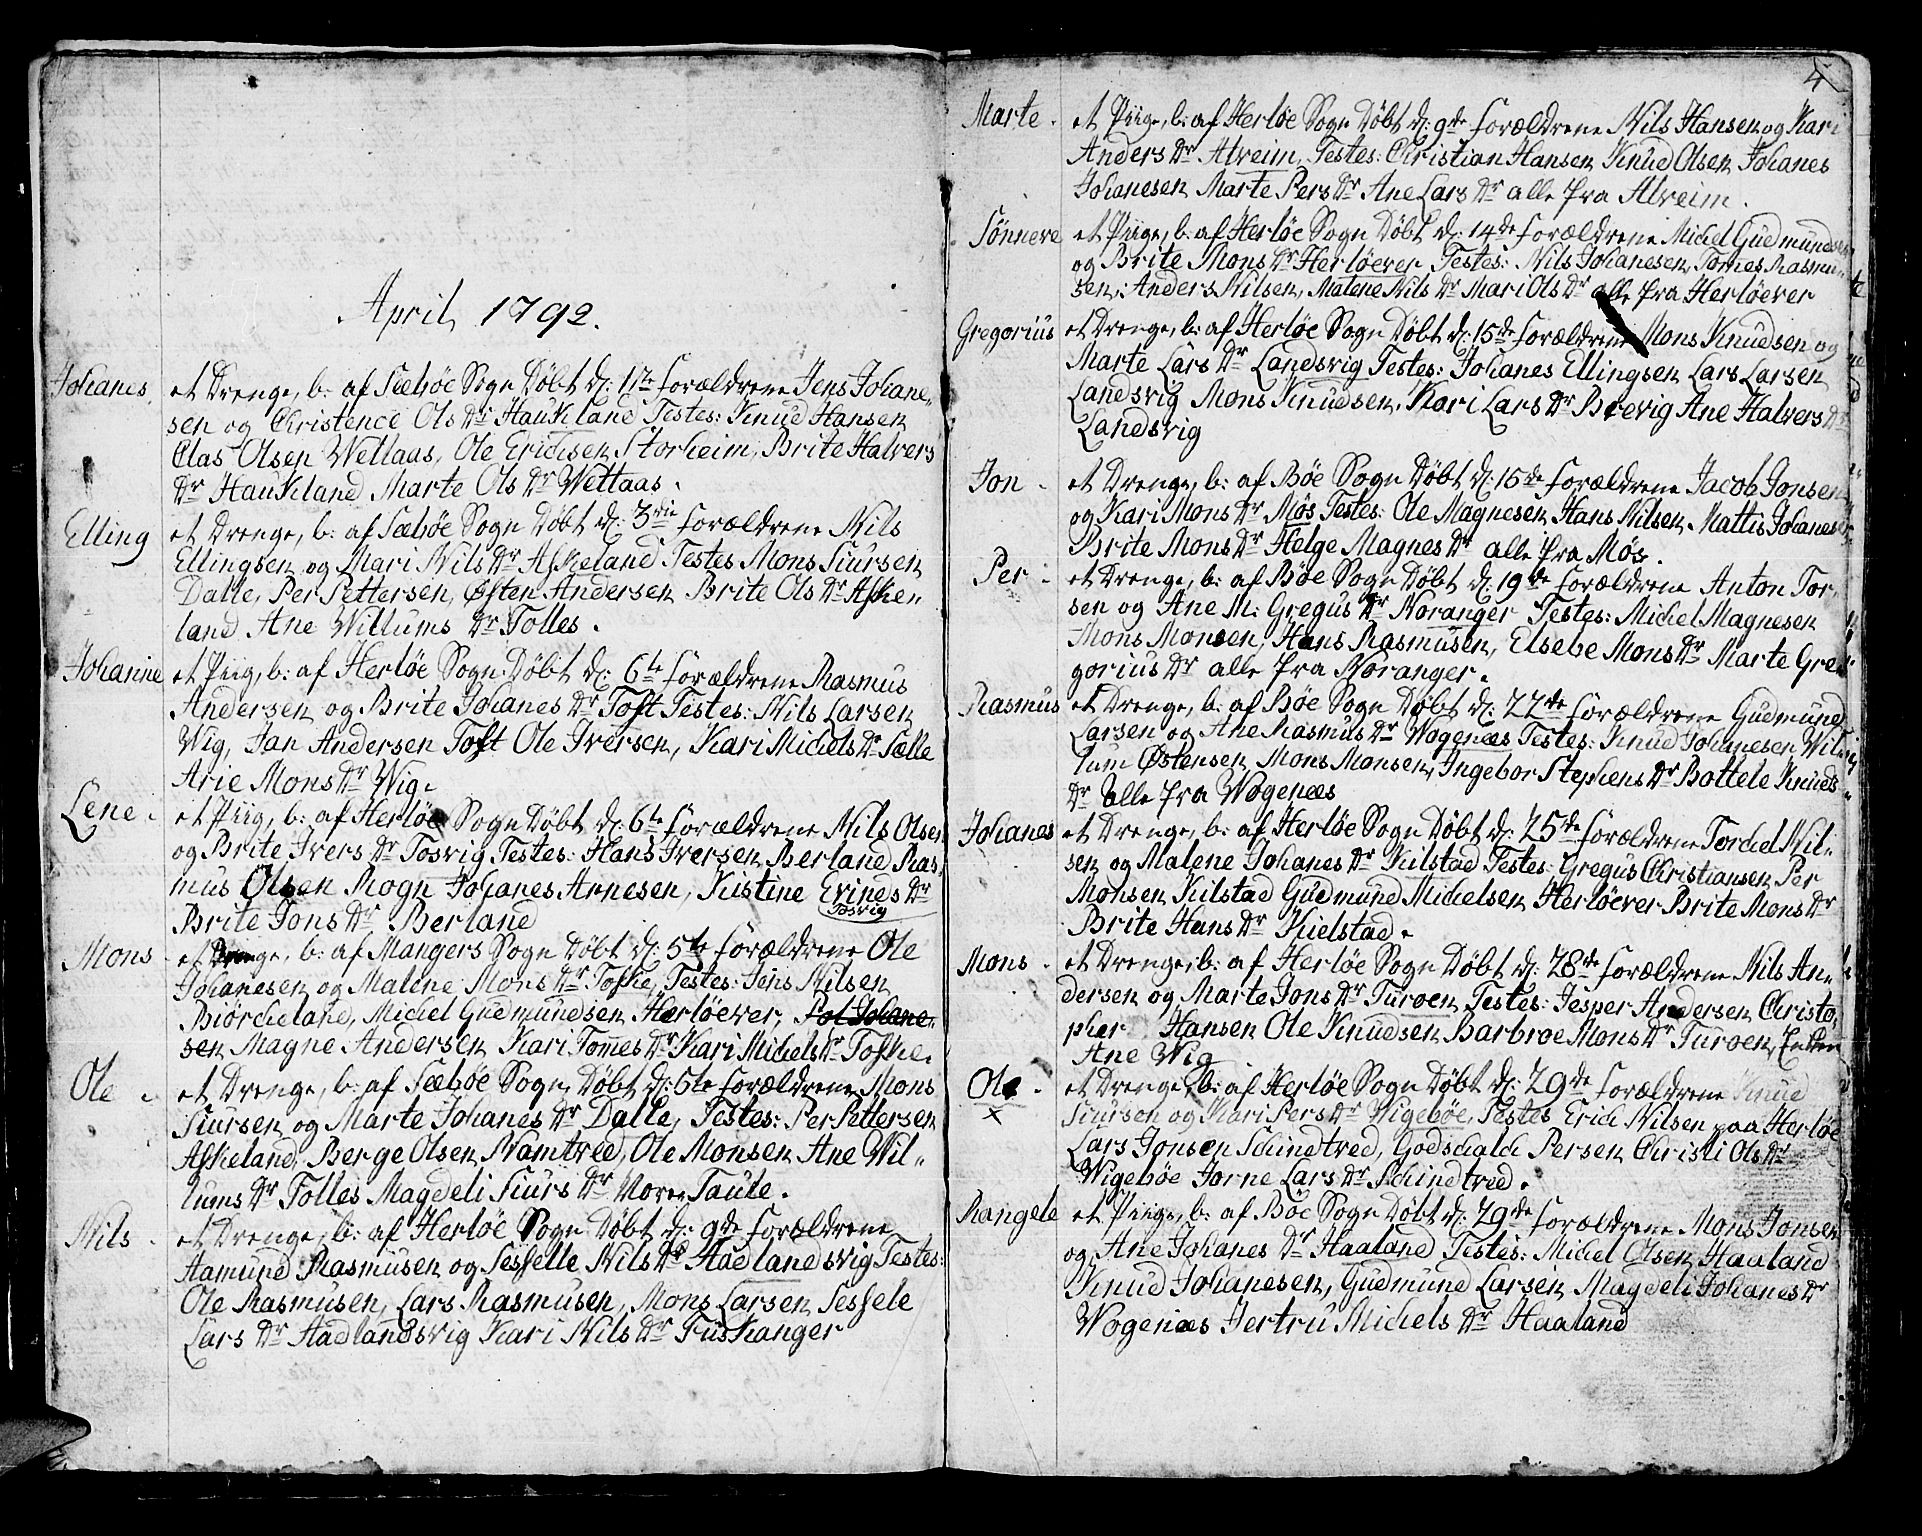 April 1792.
Johanes et Drenge, b: af Sæbøe Sogn Døbt d: 1te Forældrene Jens Johane-
sen og Christence Ols Dr Haukland Testes: Knud Hansen
Clas Olsen Wettaas, Ole Erichsen Storheim, Brite Halvers
Dr Haukland Marte Ols Dr Wettaas.
Elling et Drenge, b: af Sæbøe Sogn Døbt d: 3die Forældrene Nils
Ellingsen og Mari Nils Dr Askeland Testes Mons Siursen
Dalle, Per Pettersen, Østen Andersen Brite Ols Dr Aske-
land Ane Willums Dr Tolles.
Johanne et Piig, b: af Herløe Sogn Døbt d: 6te Forældrene Rasmus
Andersen og Brite Johanes Dr Toft Testes: Nils Larsen
Wig, Jan Andersen Toft Ole Iversen, Kari Michels Dr Sælle
Arie Mons Dr Wig.
Lene. et Piig, b: af Herløe Sogn Døbt d: 6te Forældrene Nils Olsen
og Brite Ivers Dr Tosvig Testes: Hans Iversen Berland Ras-
mus Olsen Rogn Johanes Arnesen, Kistine Evinds Dr
Tosvig
Brite Jons Dr Berland
Mons et Drenge, b: af Mangers Sogn Døbt d: 5te Forældrene Ole
Johanesen og Malene Mons Dr Toske, Testes: Jens Nilsen
Biørcheland, Michel Gudmundsen Herløever, Pol Johane-
sen Magne Andersen Kari Tomes Dr Kari Michels Dr Toske.
Ole et Drenge, b: af Sæbøe Sogn, Døbt d: 5te Forældrene Mons
Siursen og Marte Johanes Dr Dalle, Testes: Per Pettersen
Askeland, Berge Olsen Namtved, Ole Monsen Ane Wil-
lums Dr Tolles Magdeli Siurs Dr Taule.
Nils et Drenge, b: af Herløe Sogn Døbt d: 9de Forældrene
Aamund Rasmusen og Sesselle Nils Dr Aadlandsvig Testes:
Ole Rasmusen, Lars Rasmusen, Mons Larsen Sessele
Lars Dr Aadlandsvig Kari Nils Dr Fuskanger
Marte. et Piige, b: af Herløe Sogn Døbt d: 9de Forældrene Nils Hansen og Kari
Anders Dr Alveim, Testes: Christian Hansen Knud Olsen Johanes
Johanesen Marte Pers Dr Ane Lars Dr alle fra Alveim.
Sønneve et Piige, b: af Herløe Sogn Døbt d: 14de Forældrene Michel Gudmundsen
og Brite Mons Dr Herløever Testes: Nils Johanesen, Tomes Rasmu-
sen, Anders Nilsen, Malene Nils Dr Mari Ols Dr alle fra Herløever
Gregorius et Drenge, b: af Herløe Sogn Døbt d: 15de Forældrene Mons Knudsen og
Marte Lars Dr Landsvig Testes: Johanes Ellingsen Lars Larsen
Landsvig Mons Knudsen, Kari Lars Dr Brevig Ane Halvers Dr
Landsvig
Jon et Drenge, b: af Bøe Sogn Døbt d: 15de Forældrene Jacob Jonsen
og Kari Mons Dr Møs Testes: Ole Magnesen Hans Nilsen Mattis Johanes
Brite Mons Dr Helge Magnes Dr alle fra Møs.
Per et Drenge, b: af Bøe Sogn Døbt d: 19de Forældrene Anton Tor-
sen og Ane M: Gregus Dr Noranger Testes: Michel Magnesen
Mons Monsen, Hans Rasmusen, Elsebe Mons Dr Marte Gre-
gorius Dr alle fra Noranger.
Rasmus et Drenge, b: af Bøe Sogn Døbt d: 22de Forældrene Gudmund
Larsen og Ane Rasmus Dr Wogenæs Testes: Knud Johanesen Wil-
lum Østensen Mons Monsen, Ingebor Stephens Dr Bottele Knuds
Dr alle fra Wogenæs
Johanes et Drenge, b: af Herløe Sogn Døbt d: 25de Forældrene Torchel Nil-
sen og Malene Johanes Dr Kilstad Testes: Gregus Christiansen Per
Monsen Kilstad Gudmund Michelsen Herløever Brite Mons Dr
Brite Hans Dr Kielstad.
Mons. et Drenge, b: af Herløe Sogn Døbt d: 28de Forældrene Nils An-
dersen og Marte Jons Dr Turoen Testes: Jesper Andersen Christo-
pher Hansen Ole Knudsen Barbroe Mons Dr Turoen, Enken
Ane Wig
Ole. et Drenge, b: af Herløe Sogn Døbt d: 29de Forældrene Knud
x Siursen og Kari Pers Dr Wigebøe, Testes Erich Nilsen paa Herløe
Lars Jonsen Schindtved, Godschalch Persen Christi Ols Dr
Wigebøe Jorne Lars Dr Schindtved.
Rangele et Piige, b: af Bøe Sogn Døbt d: 29de Forældrene Mons Jonsen
og Ane Johanes Dr Haaland Testes: Michel Olsen Haaland
Knud Johanesen, Gudmund Larsen Magdeli Johanes Dr
Wogenæs Jertru Michels Dr Haaland